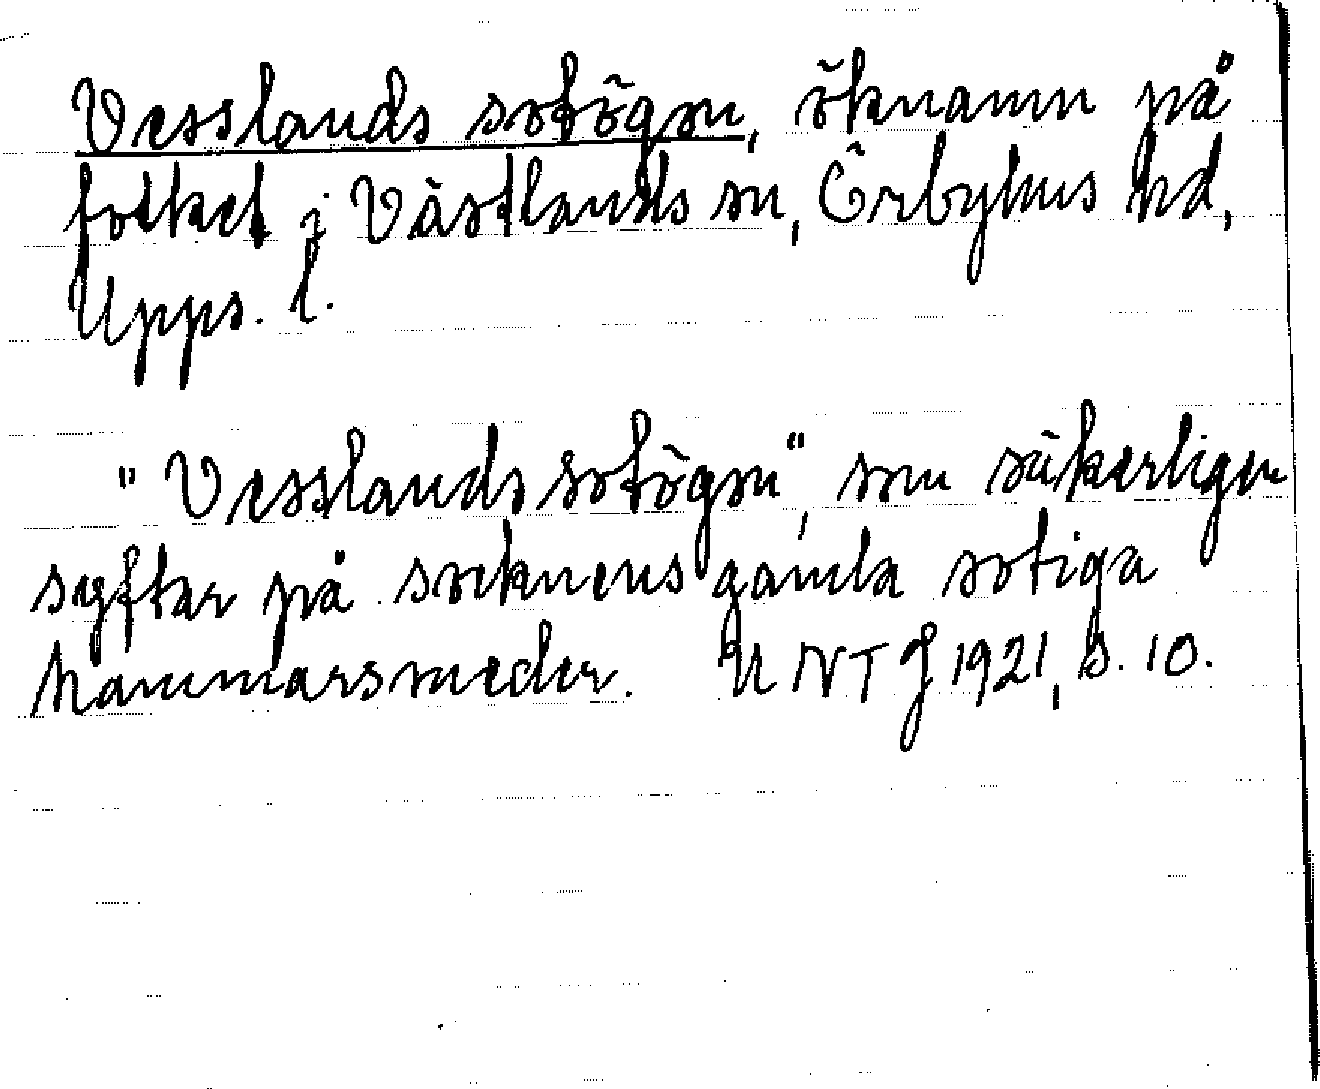 Vesslands sotögon, öknamn på
folket i Västlands sn, Örbyhus hd,
Upps. l.
"Vesslands sotögon", som säkerligen
syftar på socknens gamla sotiga
hammarsmeder. UNT J 1921, s. 10.